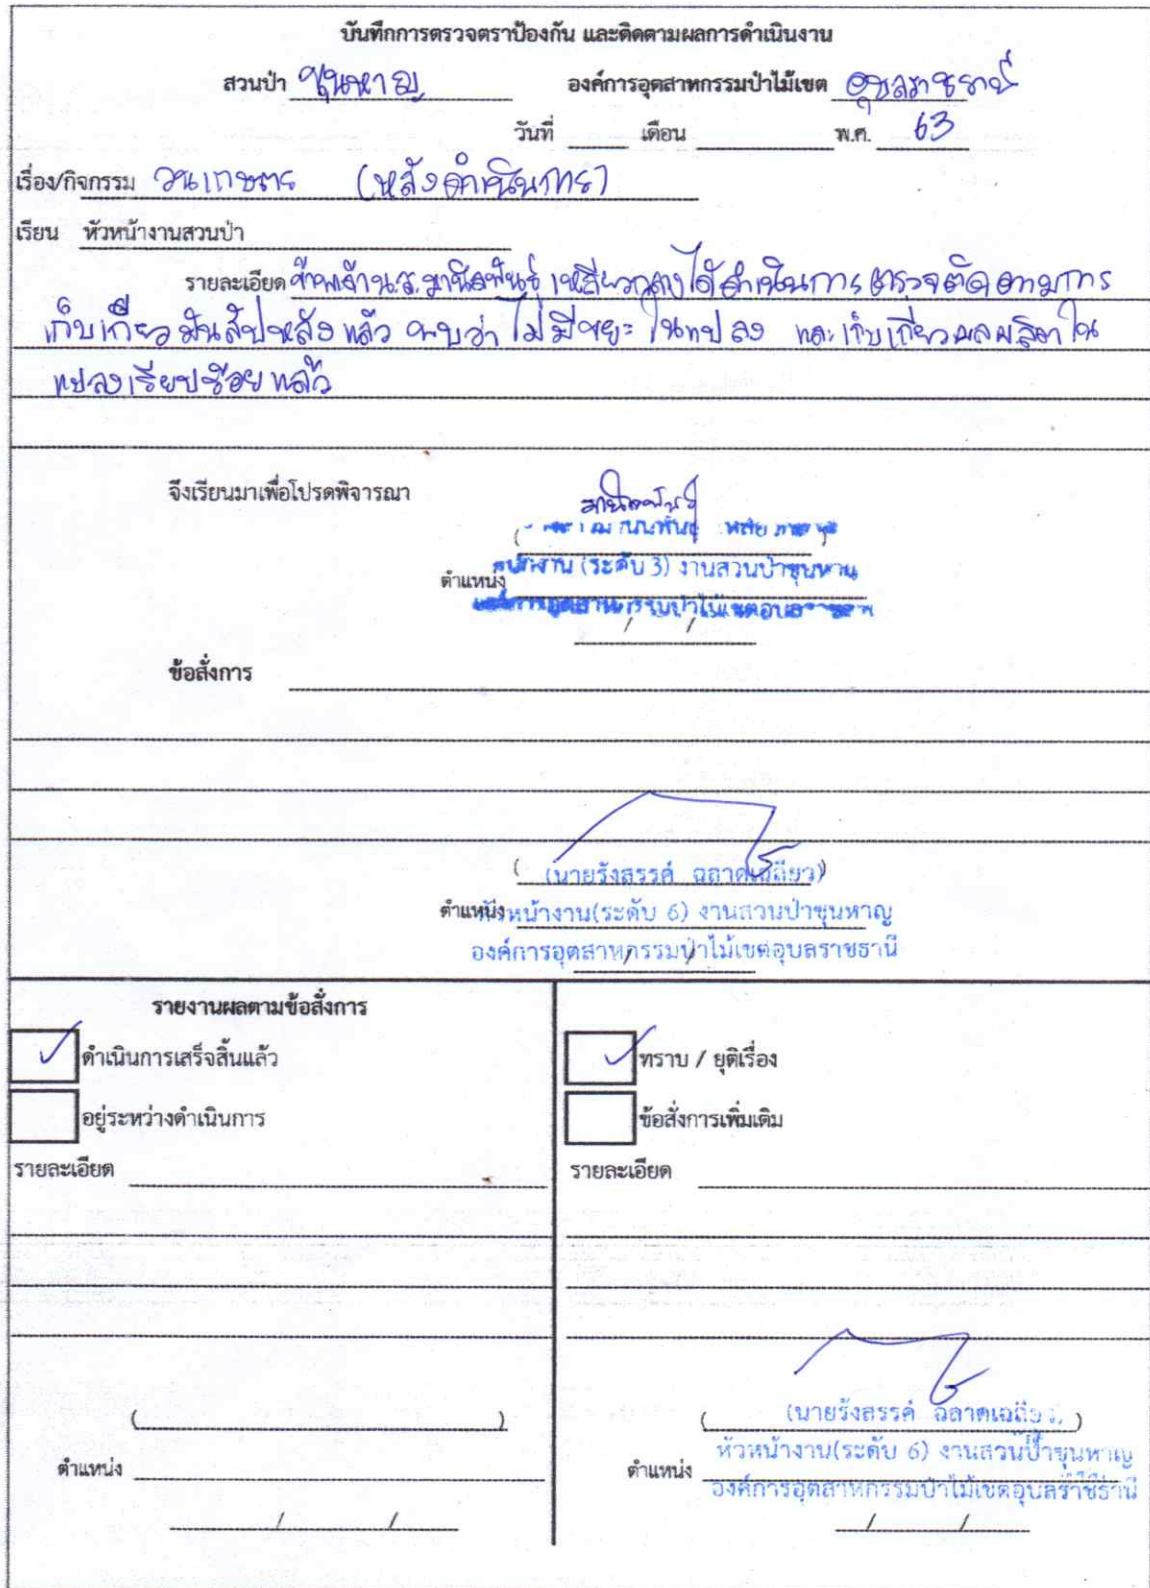 บันทึกการตรวจตราป้องกัน และติดตามผลการดำเนินงาน
สวนป่า ขุนหาญ องค์การอุตสาหกรรมป่าไม้เขต อุบลราชธานี
วันที่ เดือน พ.ศ. 63
เรื่อง/กิจกรรม วนเกษตร (หลังดำเนินการ)
เรียน หัวหน้างานสวนป่า
รายละเอียด ข้าพเจ้า น.ส. มานิตพันธุ์ เหลียวกลาง ได้ดำเนินการ ตรวจติดตามการ
เก็บเกี่ยว มันสัปหลัง แล้ว พบว่า ไม่มีขยะ ในแปลง และเก็บเกี่ยวผลผลิตใน
แปลงเรียบร้อย แล้ว
จึงเรียนมาเพื่อโปรดพิจารณา
มานิตพันธุ์
พนักงาน (ระดับ 3) งานสวนป่าขุนหาญ
ตำแหน่ง
องค์การอุตสาหกรรมป่าไม้เขตอุบลราชธานี
/ /
ข้อสั่งการ
(นายรังสรรค์ ฉลาดเฉลียว)
ตำแหน่ง หัวหน้างาน(ระดับ 6) งานสวนป่าขุนหาญ
องค์การอุตสาหกรรมป่าไม้เขตอุบลราชธานี
/ /
รายงานผลตามข้อสั่งการ
✓ ดำเนินการเสร็จสิ้นแล้ว
อยู่ระหว่างดำเนินการ
รายละเอียด
( )
ตำแหน่ง
/ /
✓ ทราบ / ยุติเรื่อง
ข้อสั่งการเพิ่มเติม
รายละเอียด
(นายรังสรรค์ ฉลาดเฉลียว)
หัวหน้างาน(ระดับ 6) งานสวนป่าขุนหาญ
ตำแหน่ง
องค์การอุตสาหกรรมป่าไม้เขตอุบลราชธานี
/ /